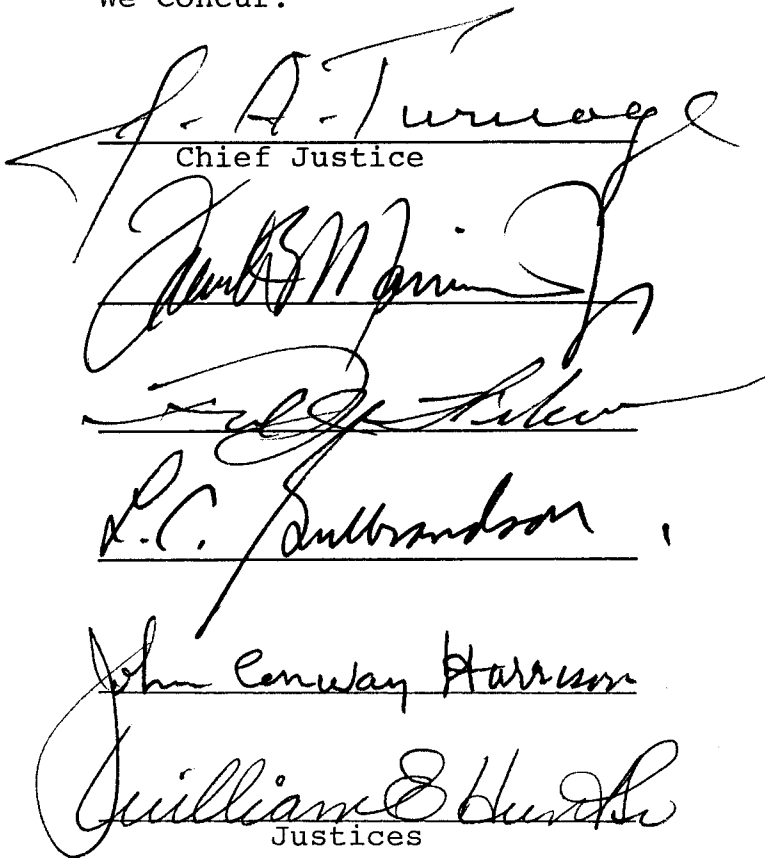 We Concur:
J. A. Turnage
Chief Justice
Frank B Morrison Jr
L.C. Gulbrandson
John Conway Harrison
William E Hunt Sr
Justices